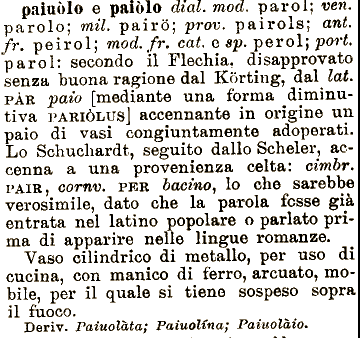 paiuòlo e paiòlo dial. mod. parol; ven.
parolo; mil. pairö; prov. pairols; ant.
fr. peirol; mod. fr. cat. e sp. perol; port.
parol: secondo il Flechia, disapprovato
senza buona ragione dal Körting, dal lat.
PÀR paio [mediante una forma diminu-
tiva PARIÒLUS] accennante in origine un
paio di vasi congiuntamente adoperati.
Lo Schuchardt, seguito dallo Scheler, ac-
cenna a una provenienza celta: cimbr.
PAIR, cornv. PER bacino, lo che sarebbe
verosimile, dato che la parola fcsse già
entrata nel latino popolare o parlato pri-
ma di apparire nelle lingue romanze.
Vaso cilindrico di metallo, per uso di
cucina, con manico di ferro, arcuato, mo-
bile, per il quale si tiene sospeso sopra
il fuoco.
Deriv. Paiuolàta; Paiuolína; Paiuolàio.